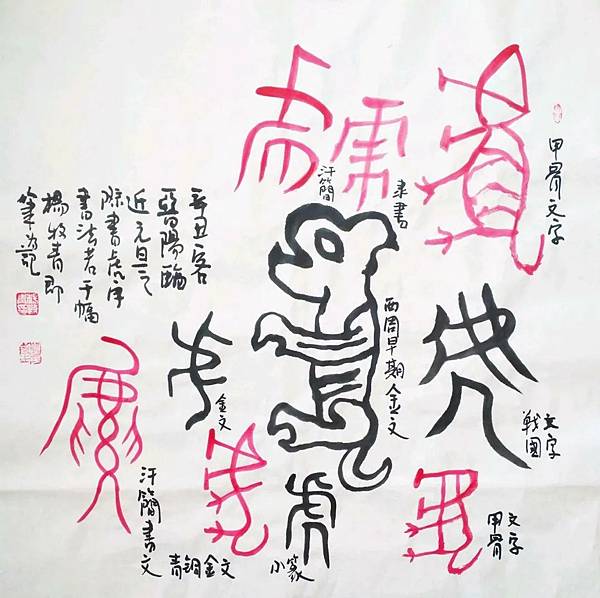 甲骨文字
隶書
汗簡
西周早期金文
戰国文字
甲骨文字
虎
小篆
金文
青銅金文
汗簡書文
辛丑客
晋陽臨
近元旦之
際書虎字
書法若干幅
楊牧青即
筆為記